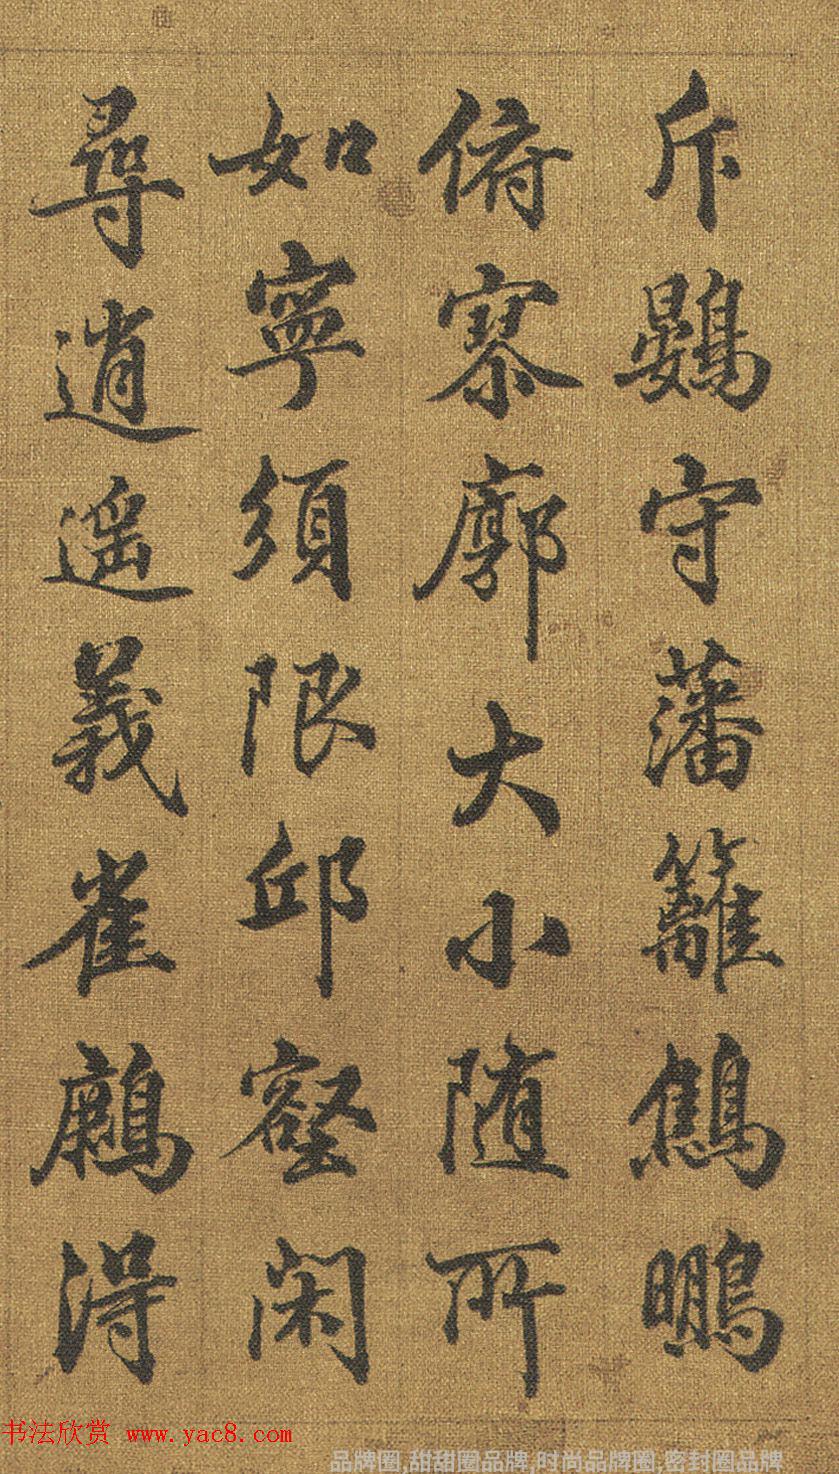 斥鷃守藩籬鷦鵬
俯寥廓大小随所
如寧須限邱壑閑
尋逍遥義雀鷃得
书法欣赏 www.yac8.com
品牌圈,甜甜圈品牌,时尚品牌圈,密封圈品牌